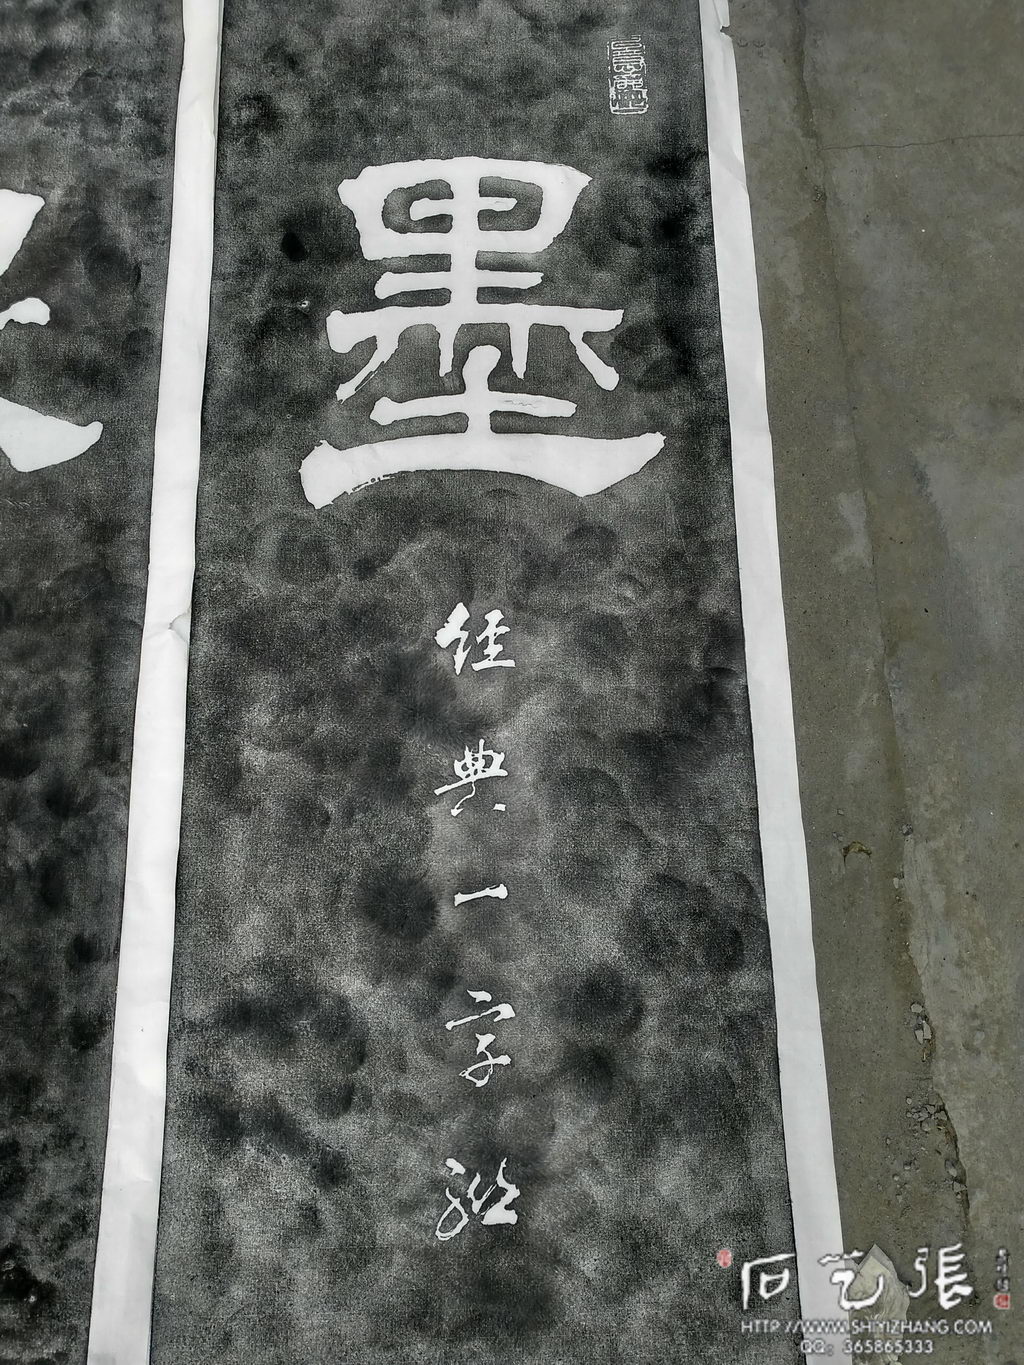 墨
经典一字
石艺張
HTTP://WWW.SHIYIZHANG.COM
QQ: 365865333